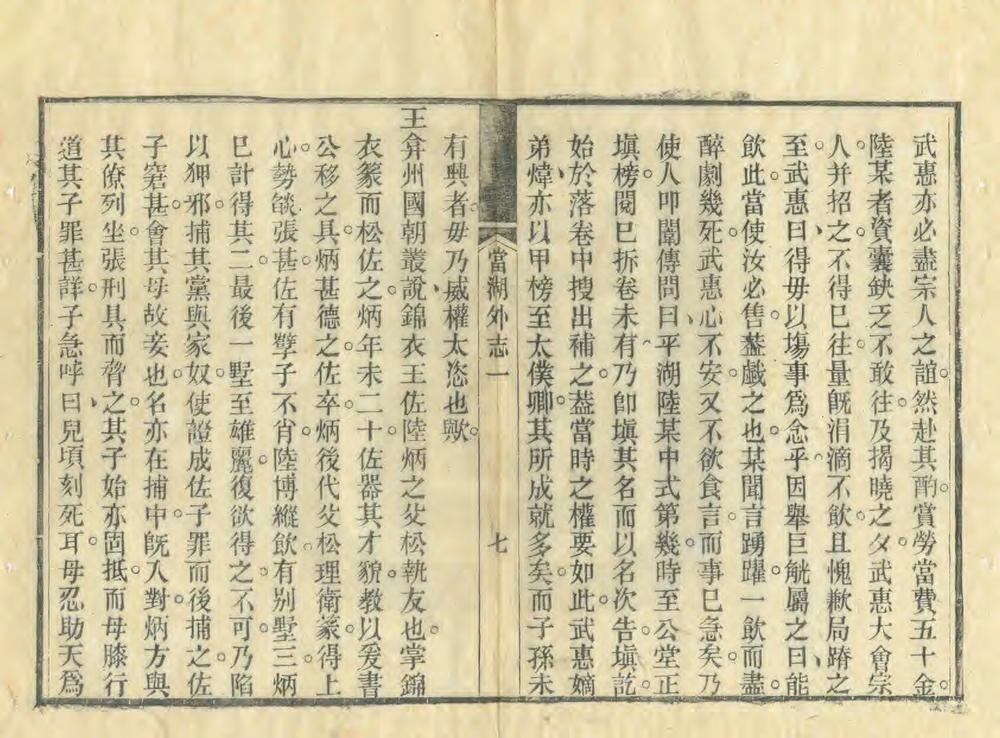 武惠亦必盡宗人之誼然赴其酌賞勞當費五十金
陸某者資囊鈌乏不敢往及揭曉之夕武惠大會宗
人并招之不得巳往量旣涓滴不飲且愧歉局蹐之
至武惠曰得毋以塲事爲念乎因舉巨觥屬之曰能
飲此當使汝必售葢戲之也某聞言踴躍一飲而盡
醉劇幾死武惠心不安又不欲食言而事巳急矣乃
使人叩闈傳問曰平湖陸某中式第幾時至公堂正
塡榜閱巳拆卷未有乃卽塡其名而以名次告塡訖
始於落卷中搜出補之葢當時之權要如此武惠嫡
弟煒亦以甲榜至太僕卿其所成就多矣而子孫未
當湖外志一
七
有興者毋乃威權太恣也歟
王弇州國朝叢說錦衣王佐陸炳之父松執友也掌錦
衣篆而松佐之炳年未二十佐器其才貌教以爰書
公移之具炳甚德之佐卒炳後代父松理衛篆得上
心勢燄張甚佐有孽子不肖陸博縱飲有別墅三炳
巳計得其二最後一墅至雄麗復欲得之不可乃陷
以狎邪捕其黨與家奴使證成佐子罪而後捕之佐
子窘甚會其母故妾也名亦在捕中旣入對炳方與
其僚列坐張刑具而脅之其子始亦固抵而母膝行
道其子罪甚詳子急呼曰兒頃刻死耳母忍助天爲